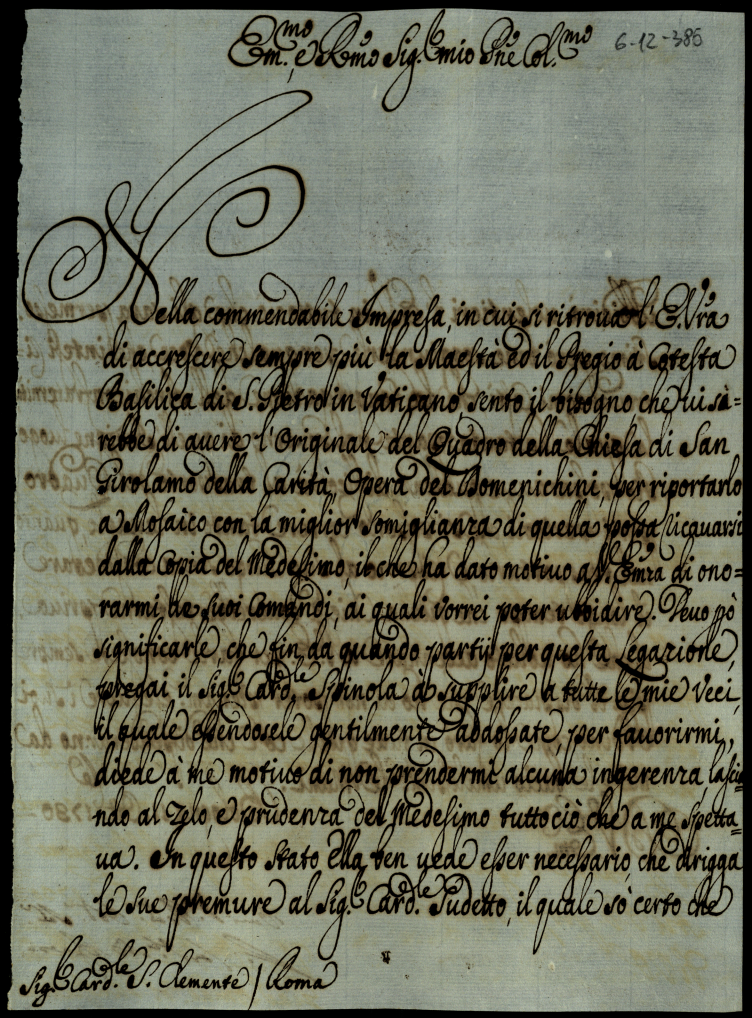 Em.mo e Rmo Sig.r mio Pne Col.mo
6-12-386
Nella commendabile Impresa, in cui si ritrova l'E. Vra
di accrescere sempre più la Maestà ed il Pregio à Cotesta
Basilica di S. Pietro in Vaticano, sento il bisogno che vi sa=
rebbe di avere l'Originale del Quadro della Chiesa di San
Girolamo della Carità, Opera del Domenichini, per riportarlo
a Mosaico con la miglior somiglianza di quella possa ricavarsi
dalla Copia del Medesimo, il che ha dato motivo a V. Emza di ono=
rarmi de suoi Comandi, ai quali vorrei poter ubbidire. Devo pò
significarle, che fin da quando partij per questa Legazione,
pregai il Sig.r Card.le Spinola à supplire a tutte le mie Veci,
il quale essendosele gentilmente addossate, per favorirmi,
diede à me motivo di non prendermi alcuna ingerenza, lascia
ndo al Zelo, e prudenza del Medesimo tutto ciò che a me spetta=
va. In questo stato Ella ben vede esser necessario, che dirigga
le sue premure al Sig.r Card.le Sudetto, il quale sò certo che
Sig.r Card.le S. Clemente / Roma